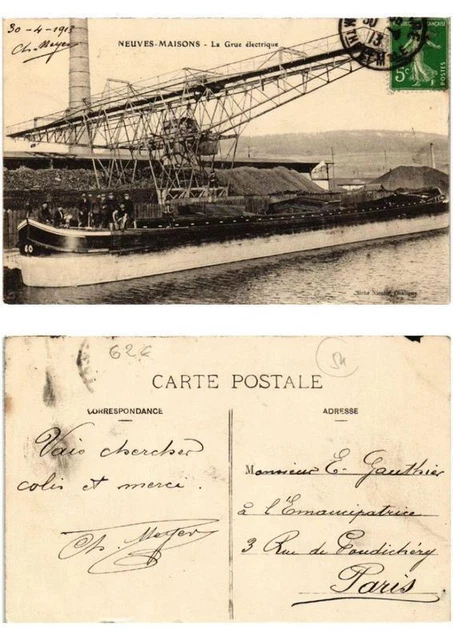 30-4-1913
Ch. Meyer
NEUVES-MAISONS - La Grue électrique
5c
POSTES
60
626
54
CARTE POSTALE
CORRESPONDANCE
ADRESSE
Vais chercher
colis et merci.
Ch. Meyer
Monsieur E. Gauthier
à l'Emancipatrice
3 Rue de Pondichéry
Paris